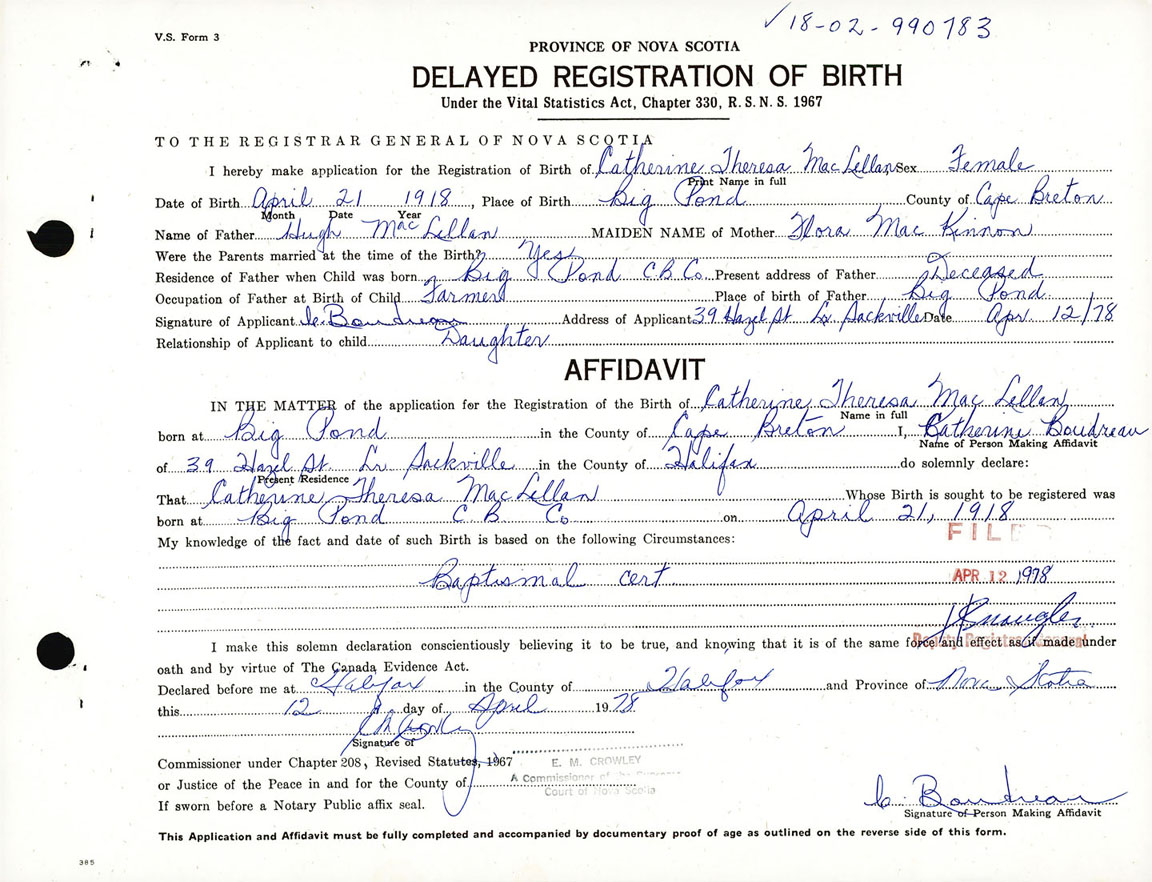 ✓18-02-990783
V.S. Form 3
PROVINCE OF NOVA SCOTIA
DELAYED REGISTRATION OF BIRTH
Under the Vital Statistics Act, Chapter 330, R. S. N. S. 1967
TO THE REGISTRAR GENERAL OF NOVA SCOTIA
I hereby make application for the Registration of Birth of Catherine Theresa MacLellan Sex Female
Print Name in full
Date of Birth April 21 1918, Place of Birth Big Pond County of Cape Breton
Month Date Year
Name of Father Hugh MacLellan MAIDEN NAME of Mother Flora MacKinnon
Were the Parents married at the time of the Birth? Yes
Residence of Father when Child was born Big Pond C.B. Co. Present address of Father Deceased
Occupation of Father at Birth of Child Farmer Place of birth of Father Big Pond
Signature of Applicant C. Boudreau Address of Applicant 39 Hazel St Lr Sackville Date Apr 12/78
Relationship of Applicant to child Daughter
AFFIDAVIT
IN THE MATTER of the application for the Registration of the Birth of Catherine Theresa MacLellan
Name in full
born at Big Pond in the County of Cape Breton I, Catherine Boudreau
Name of Person Making Affidavit
of 39 Hazel St. Lr Sackville in the County of Halifax do solemnly declare:
Present Residence
That Catherine Theresa MacLellan Whose Birth is sought to be registered was
born at Big Pond C.B. Co on April 21, 1918
My knowledge of the fact and date of such Birth is based on the following Circumstances:
FILED
Baptismal cert
APR 12 1978
Deputy Registrar General
I make this solemn declaration conscientiously believing it to be true, and knowing that it is of the same force and effect as if made under
oath and by virtue of The Canada Evidence Act.
Declared before me at Halifax in the County of Halifax and Province of Nova Scotia
this 12 day of April 1978
Signature of
Commissioner under Chapter 208, Revised Statutes, 1967
E. M. CROWLEY
or Justice of the Peace in and for the County of
A Commissioner of the Supreme
Court of Nova Scotia
If sworn before a Notary Public affix seal.
C. Boudreau
Signature of Person Making Affidavit
This Application and Affidavit must be fully completed and accompanied by documentary proof of age as outlined on the reverse side of this form.
385